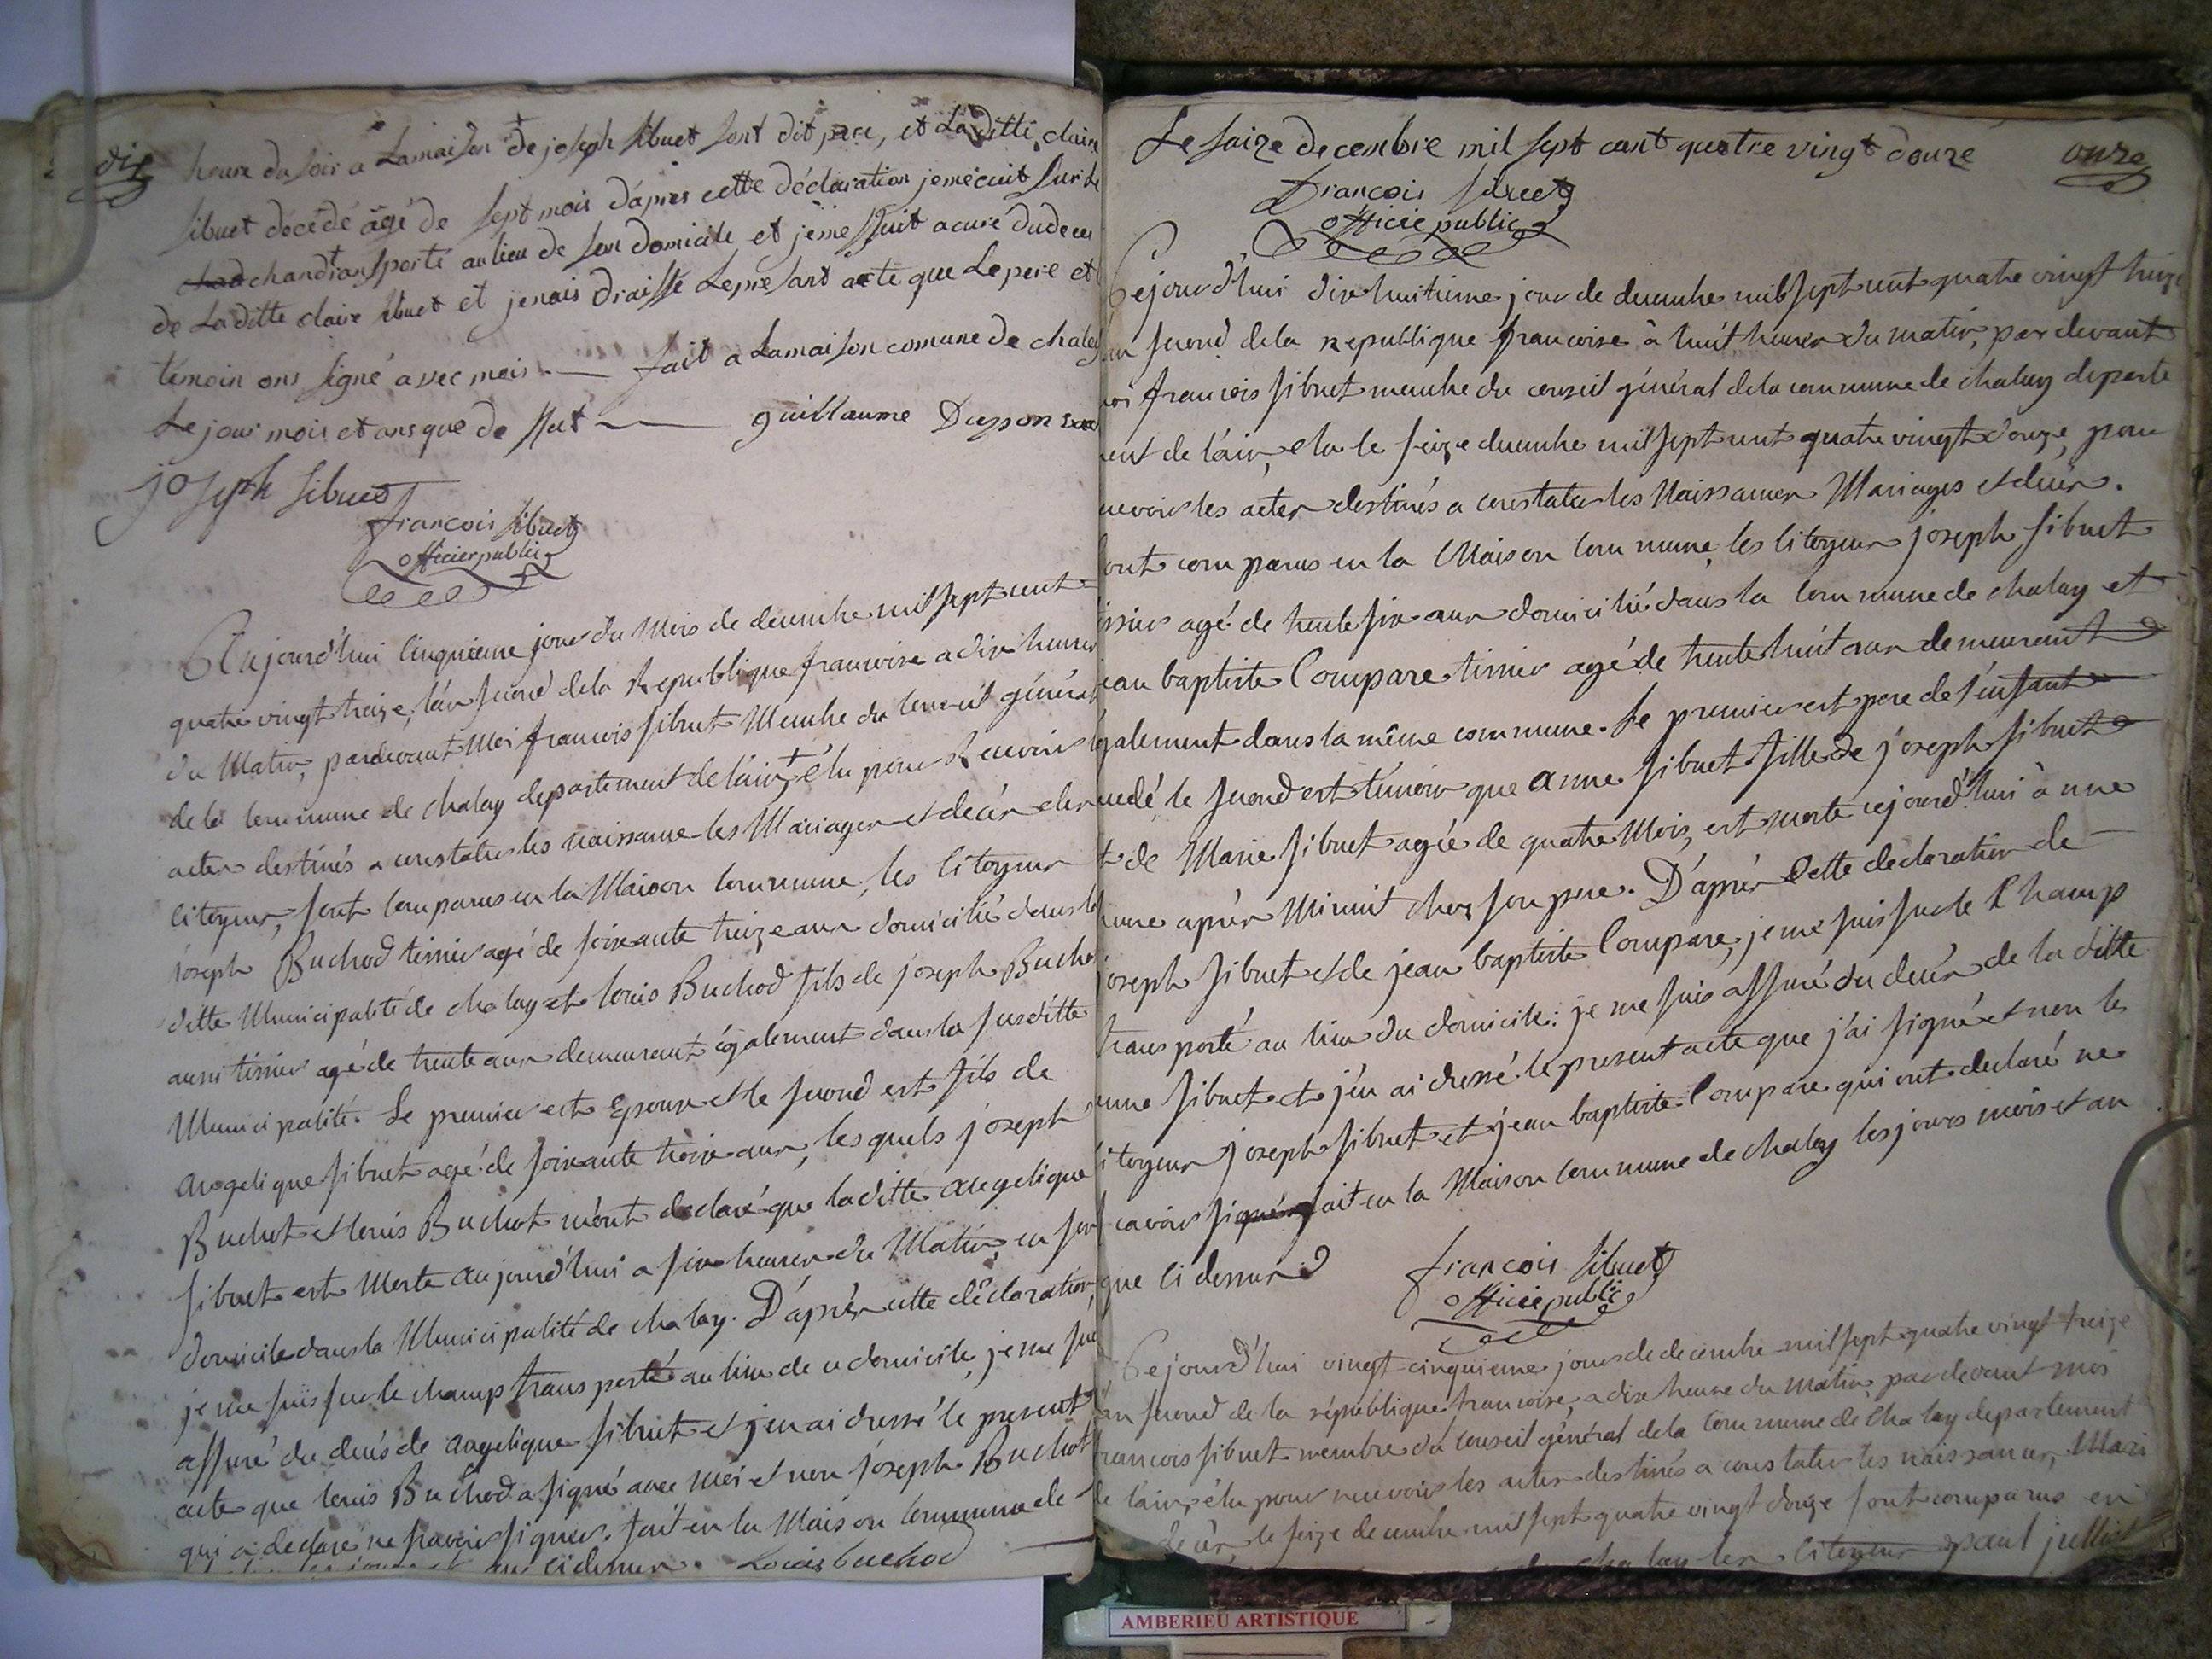 dix
heure du soir a Lamaison de joseph sibuet sont dit pere, et La ditte claire
sibuet décédé âgé de sept mois d'apres cette déclaration jeme cuit sur le
chandtransporté au lieu de son domicile et jeme ssuit acuré dudeces
de La ditte claire sibuet et jenais draissé Lepresant acte que Le pere et
temoin ons signé avec mois — fait a Lamaison comune de chaley
Le jour mois et ans que de ssut — guillaume Dupon
joseph sibuet
francois sibuet
officier public
Aujourd'hui cinquieme jour du Mois de decembre mil sept cent
quatre vingt treize, l'an second dela Republique francoise a dix heures
du Matin, pardevant Moi francois sibuet Membre du conseil général
de la commune de chaley departement de l'ain, élu pour Recevoir les
actes destinés a constater les naissance les Mariages et décès des
citoyens, sont comparus en la Maison commune, les citoyens
joseph Buchod tissier agé de soixante treize ans domicilié dans la
ditte Municipalité de chaley et louis Buchod fils de joseph Bucho
aussi tissier agé de trente ans demeurant également dans la susditte
Municipalité. Le premier est Epoux et le second est fils de
angelique sibuet agé de soixante treize ans, lesquels joseph
Buchot et louis Buchot m'ont declaré que laditte angelique
sibuet est Morte aujourd'hui a six heures du Matin, en son
domicile dans la Municipalité de chaley. D'après cette déclaration,
je me suis sur le champ transporté au lieu de ce domicile, je me suis
assuré du decés de angelique sibuet et j'en ai dressé le present
acte que louis Buchod a signé avec moi et non joseph Buchot
qui a declaré ne savoir signer. fait en la Maison commune de
ci dessus. Louis buchod
Le saize decembre mil sept cant quatre vingt douze
onze
francois sibuet
officie public
Cejourd'hui dix huitieme jour de decembre mil sept cent quatre vingt treize
an second dela republique francoise à huit heures du matin, par devant
moi francois sibuet membre du conseil général dela commune de chaley departe
ment de l'ain, elu le seize decembre mil sept cent quatre vingt douze, pour
recevoir les actes destinés a constater les Naissances Mariages et décès.
sont comparus en la Maison commune les citoyens joseph sibuet
tissier agé de trente six ans domicilié dans la commune de chaley et
jean baptiste Compare tissier agé de trente huit ans demeurant
également dans la même commune. Le premier est pere de l'enfant
decedé le second est témoin que anne sibuet fille de joseph sibuet
et de Marie sibuet agée de quatre Mois, est morte cejourd'hui à une
heure après Minuit chez son pere. D'après Cette declaration de
joseph sibuet et de jean baptiste Compare, je me suis sur le Champ
transporté au lieu du domicile: je me suis assuré du decés de la ditte
anne sibuet et j'en ai dressé le present acte que j'ai signé et non les
citoyens joseph sibuet et jean baptiste Compare qui ont declaré ne
scavoir signer fait en la Maison commune de chaley les jours mois et an
que ci dessus
francois sibuet
officie public
Cejourd'hui vingt cinquieme jour de decembre mil sept quatre vingt treize
an second de la république francoise, a dix heure du matin, par devant moi
francois sibuet membre du conseil général dela commune de Chaley departement
de l'ain, élu pour recevoir les actes destinés a constater les naissances, Mari
décès, le seize decembre mil sept quatre vingt douze sont comparus en
chaley les citoyens paul julliet
AMBERIEU ARTISTIQUE